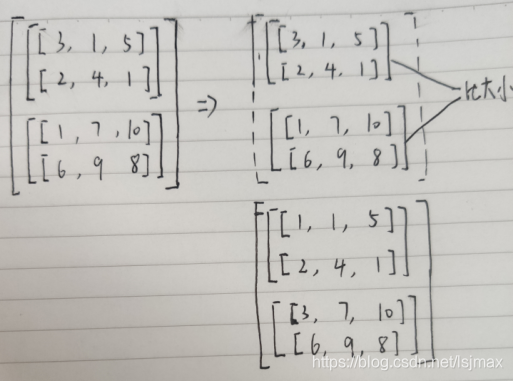 [[[3, 1, 5]
[2, 4, 1]]
[[1, 7, 10]
[6, 9 8]]]
=>
[[[3, 1, 5]]
[2, 4, 1]]
比大小
[[1, 7, 10]
[6, 9, 8]]]
[[[1, 1, 5]]
[2, 4, 1]]
[[3, 7, 10]]
[6, 9, 8]]]
https://blog.csdn.net/lsjmax